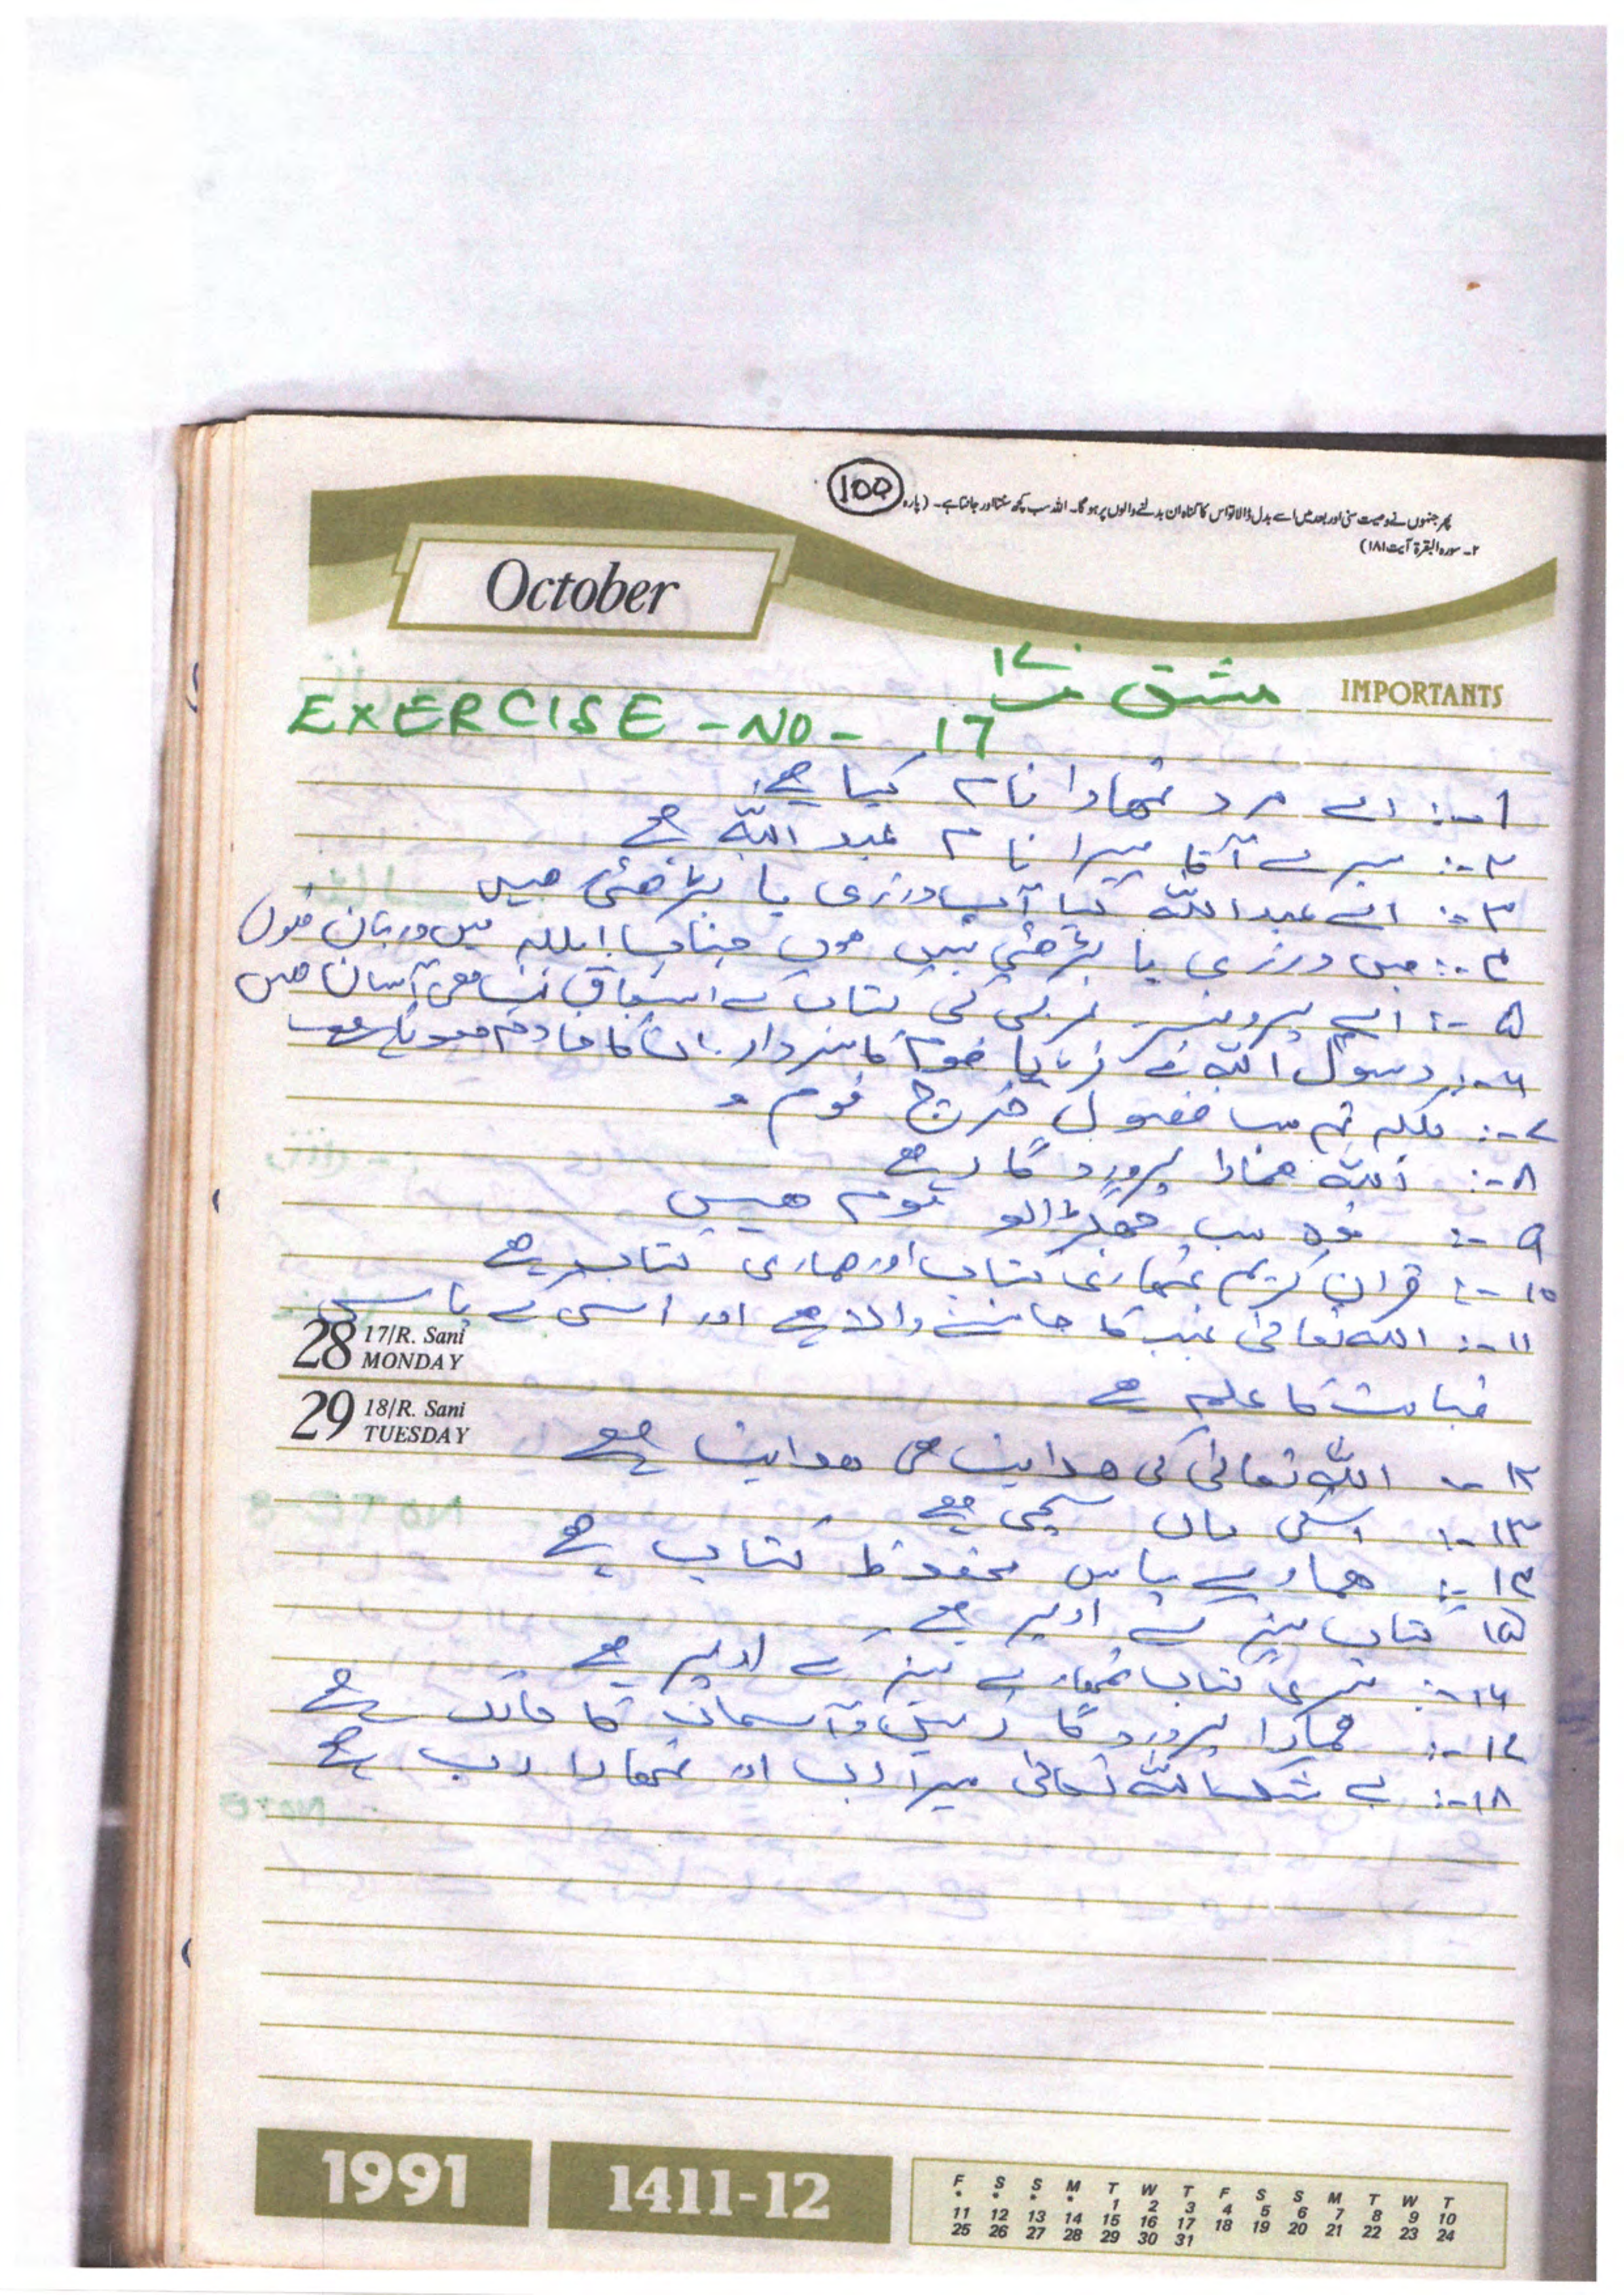 100
پھر جنہوں نے وصیت سنی اور بعد میں اسے بدل ڈالا تو اس کا گناہ ان بدلنے والوں پر ہو گا۔ اللہ سب کچھ سنتا اور جانتا ہے۔ (پارہ
۲۔ سورہ البقرۃ آیت ۱۸۱)
October
IMPORTANTS
مشق نمبر ۱۷
EXERCISE - NO - 17
1-: اے مرد تمھارا نام کیا ہے
۲-: میرے آقا میرا نام عبد اللہ ہے
۳-: اے عبد اللہ کیا آپ درزی یا بڑھئی ھیں
۴-: میں درزی یا بڑھئی نہیں ھوں جناب! بلکہ میں دربان ھوں
۵-: اے پروفیسر عربی کی کتاب کے اسباق آسان ھیں
۶-: رسول اللہ نے فرمایا قوم کا سردار ان کا خادم ھوتا ھے
۷-: بلکہ تم سب فضول خرچ قوم ہو
۸-: اللہ ھمارا پروردگار ہے
۹-: وہ سب جھگڑالو قوم ھیں
۱۰-: قران کریم تمھاری کتاب اور ھماری کتاب ہے
۱۱-: اللہ تعالیٰ غیب کا جاننے والا ہے اور اسی کے پاس
28 17/R. Sani MONDAY
قیامت کا علم ہے
29 18/R. Sani TUESDAY
۱۲-: اللہ تعالیٰ کی ھدایت ھی ھدایت ہے
۱۳-: اسکی ماں سچی ہے
۱۴-: ھمارے پاس محفوظ کتاب ہے
۱۵ کتاب میز کے اوپر ہے
۱۶-: میری کتاب تمھارے میز کے اوپر ہے
۱۷-: ھمارا پروردگار زمین و آسمان کا مالک ہے
۱۸-: بے شک اللہ تعالیٰ میرا رب اور تمھارا رب ہے
1991
1411-12
F S S M T W T F S S M T W T
* * * * 1 2 3 4 5 6 7 8 9 10
11 12 13 14 15 16 17 18 19 20 21 22 23 24
25 26 27 28 29 30 31